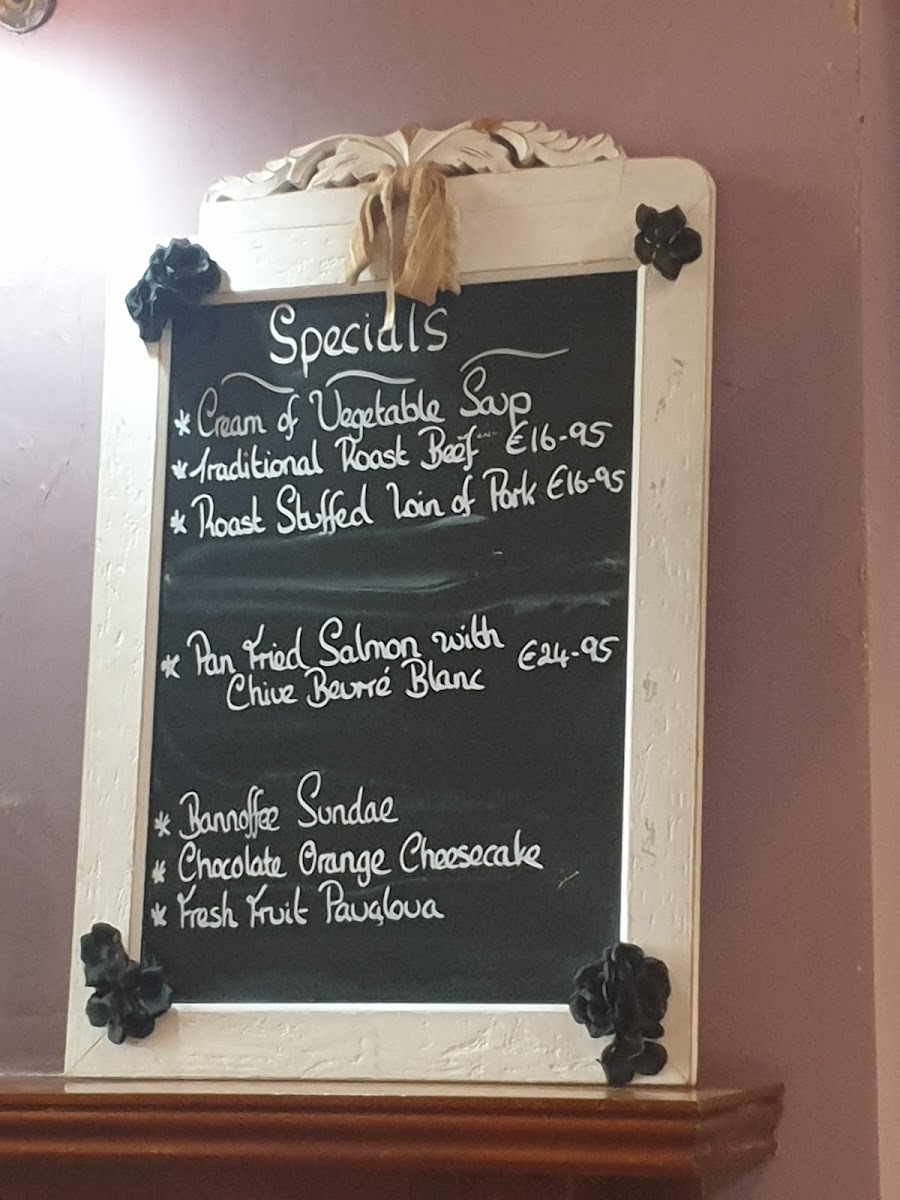 Specials
* Cream of Vegetable Soup
* Traditional Roast Beef €16-95
* Roast Stuffed Loin of Pork €16-95
* Pan Fried Salmon with €24-95
Chive Beurré Blanc
* Bannoffee Sundae
* Chocolate Orange Cheesecake
* Fresh Fruit Pavalova